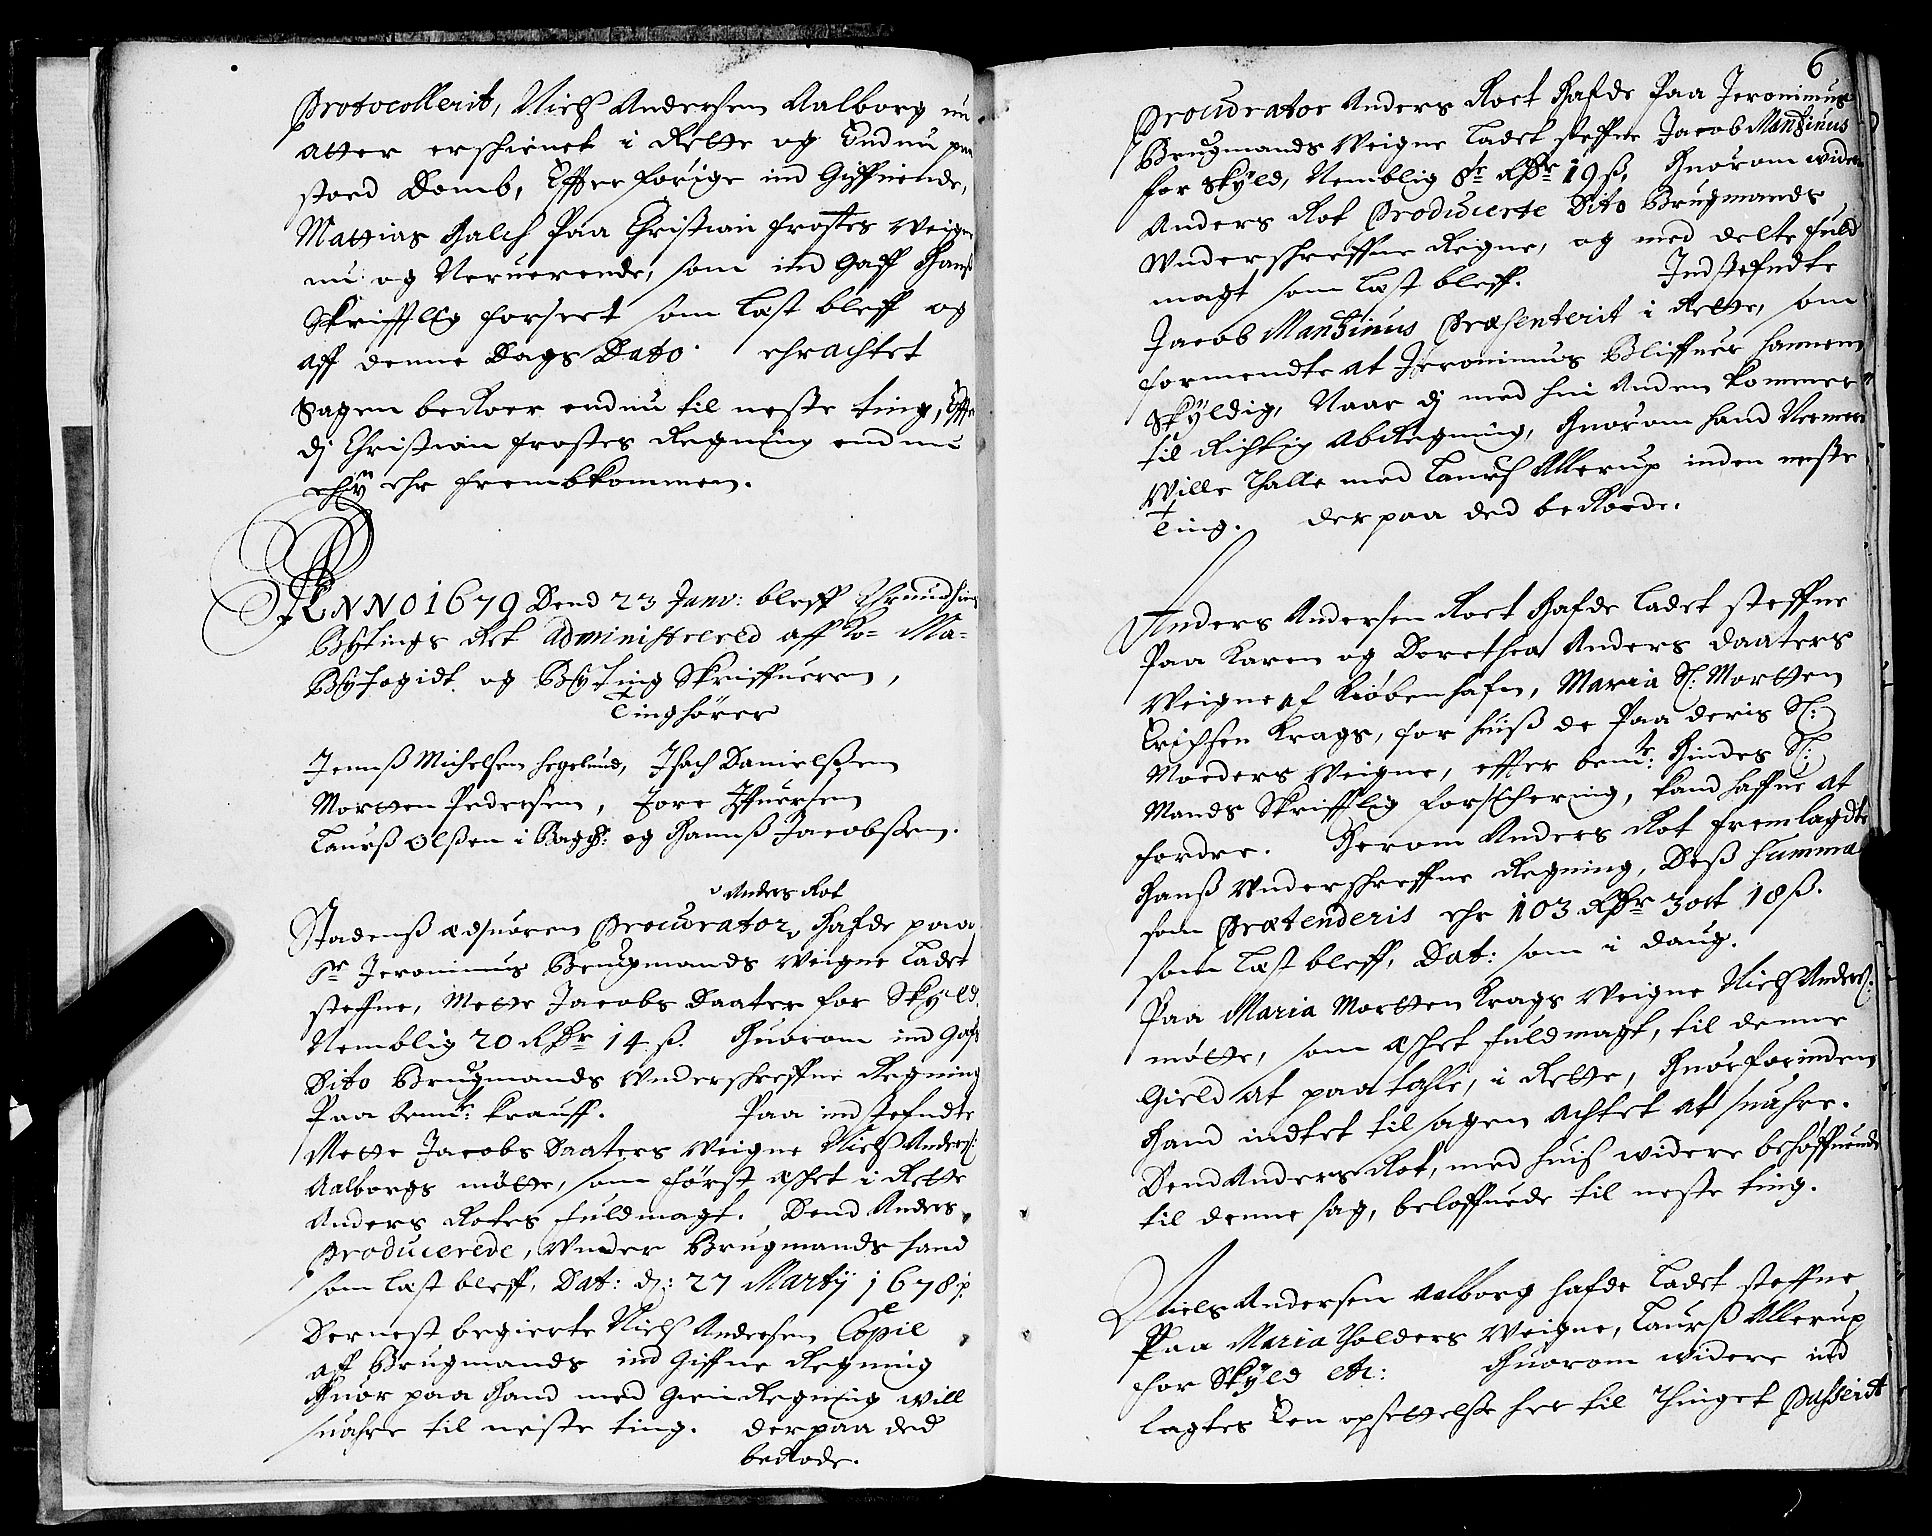 Protocollerit, Niels Andersen Aalborg nu
atter erschienet i Rette og Endnu paa
stoed Domb, Effter forige ind Giffuende,
Mattias Galch Paa Christian frostes Weigne
nu og Neruerende, som ind Gaff Hans
Skrifftlig forsæt som Læst bleff og
aff denne Dags Dato. ehrachtet
Sagen beRoer endnu til neste ting, Effter
dj Christian frostes Regning endnu
ehr frembkommen.
ANNO 1679 Dend 23 Janu: bleff Thrundhiems
Bytings Ret administrered aff Ko= Ma=
Byfogidt og Byting Skriffueren,
Tinghörer
Jennß Michelsen Hegelund, Isach Danielßen
Morten Pedersen, Tore Iffuersen
Laurß Olßen i Bagh: og Hannß Jacobßen.
Anders Rot
Stadenß edsuoren Procurator, Hafde paa
Sr Jeronimus Brugmands Weigne Ladet
steffne, Mette Jacobs Daater for Skyld,
Nemblig 20 Rdr 14 ß. Huorom ind Gafs
Dito Brugmands Underschreffne Regning
Paa bemte: krauff. Paa indstefndte
Mette Jacobs Daaters Weigne Niels Anders:
Aalborgs mötte, som först æsket i Rette
Anders Rotes fuldmagt. Dend Anders
Producerede, Under Brugmands Hand
som Læst bleff, Dat: d: 27 Martij 1678
Dernest begierte Niels Andersen Copie
aff Brugmands ind Giffne Regning
Huor paa Hand med Gien Regning will
suahre til neste ting. derpaa ded
beRode.
6
Procurator Anders Roet Hafde Paa Jeronimus
Brugmands Weigne Ladet steffne Jacob Mantzinus
for Skyld, Nemblig 8te Rdr 19 ß, Huorom widere
Anders Rot Producerte Dito Brugmands
Underschreffne Regne, og med delte fuld
magt som Læst bleff. Indstefndte
Jacob Mantzinus Præsenterit i Rette, som
formendte at Jeronimus Bliffuer hannem
Skÿldig, Naar dj med hin Anden kommer
til Richtig AbRegning, Huorom hand Nermere
Wille Thalle med Laurß Allerup inden neste
Ting. derpaa ded beRoede.
Anders Andersen Roet Hafde Ladet steffne
Paa Karen og Dorethea Anders daaters
Weigne af Kiöbenhafn, Maria Sl: Morten
Erichsen Krags, for huiß de Paa deris Sl:
Moeders Weigne, effter bemte: Hindes Sl:
Mands Skrifftlig forsichering, kand haffue at
fordre. Herom Anders Rot fremlagde
Hanß Underschreffne Regning, Deß Summa
som Prætenderis ehr 103 Rdr 3 ort 18 ß.
som Læst bleff, Dat: som i daug.
Paa Maria Morten Krags Weigne Niels Anders:
mötte, som æsket fuldmagt, til denne
Gield at paatahle, i Rette, Huorforinden
Hand indtet til sagen achtet at suahre.
Dend Anders Rot, med huiß widere behöffuende
til denne sag, beloffuede til neste ting.
Niels Andersen Aalborg hafde Ladet steffne
Paa Maria Tholders Weigne, Laurß Allerup
for Skÿld etc: Huorom widere ind
lagtes Een opsettelse her til Thinget Passerit